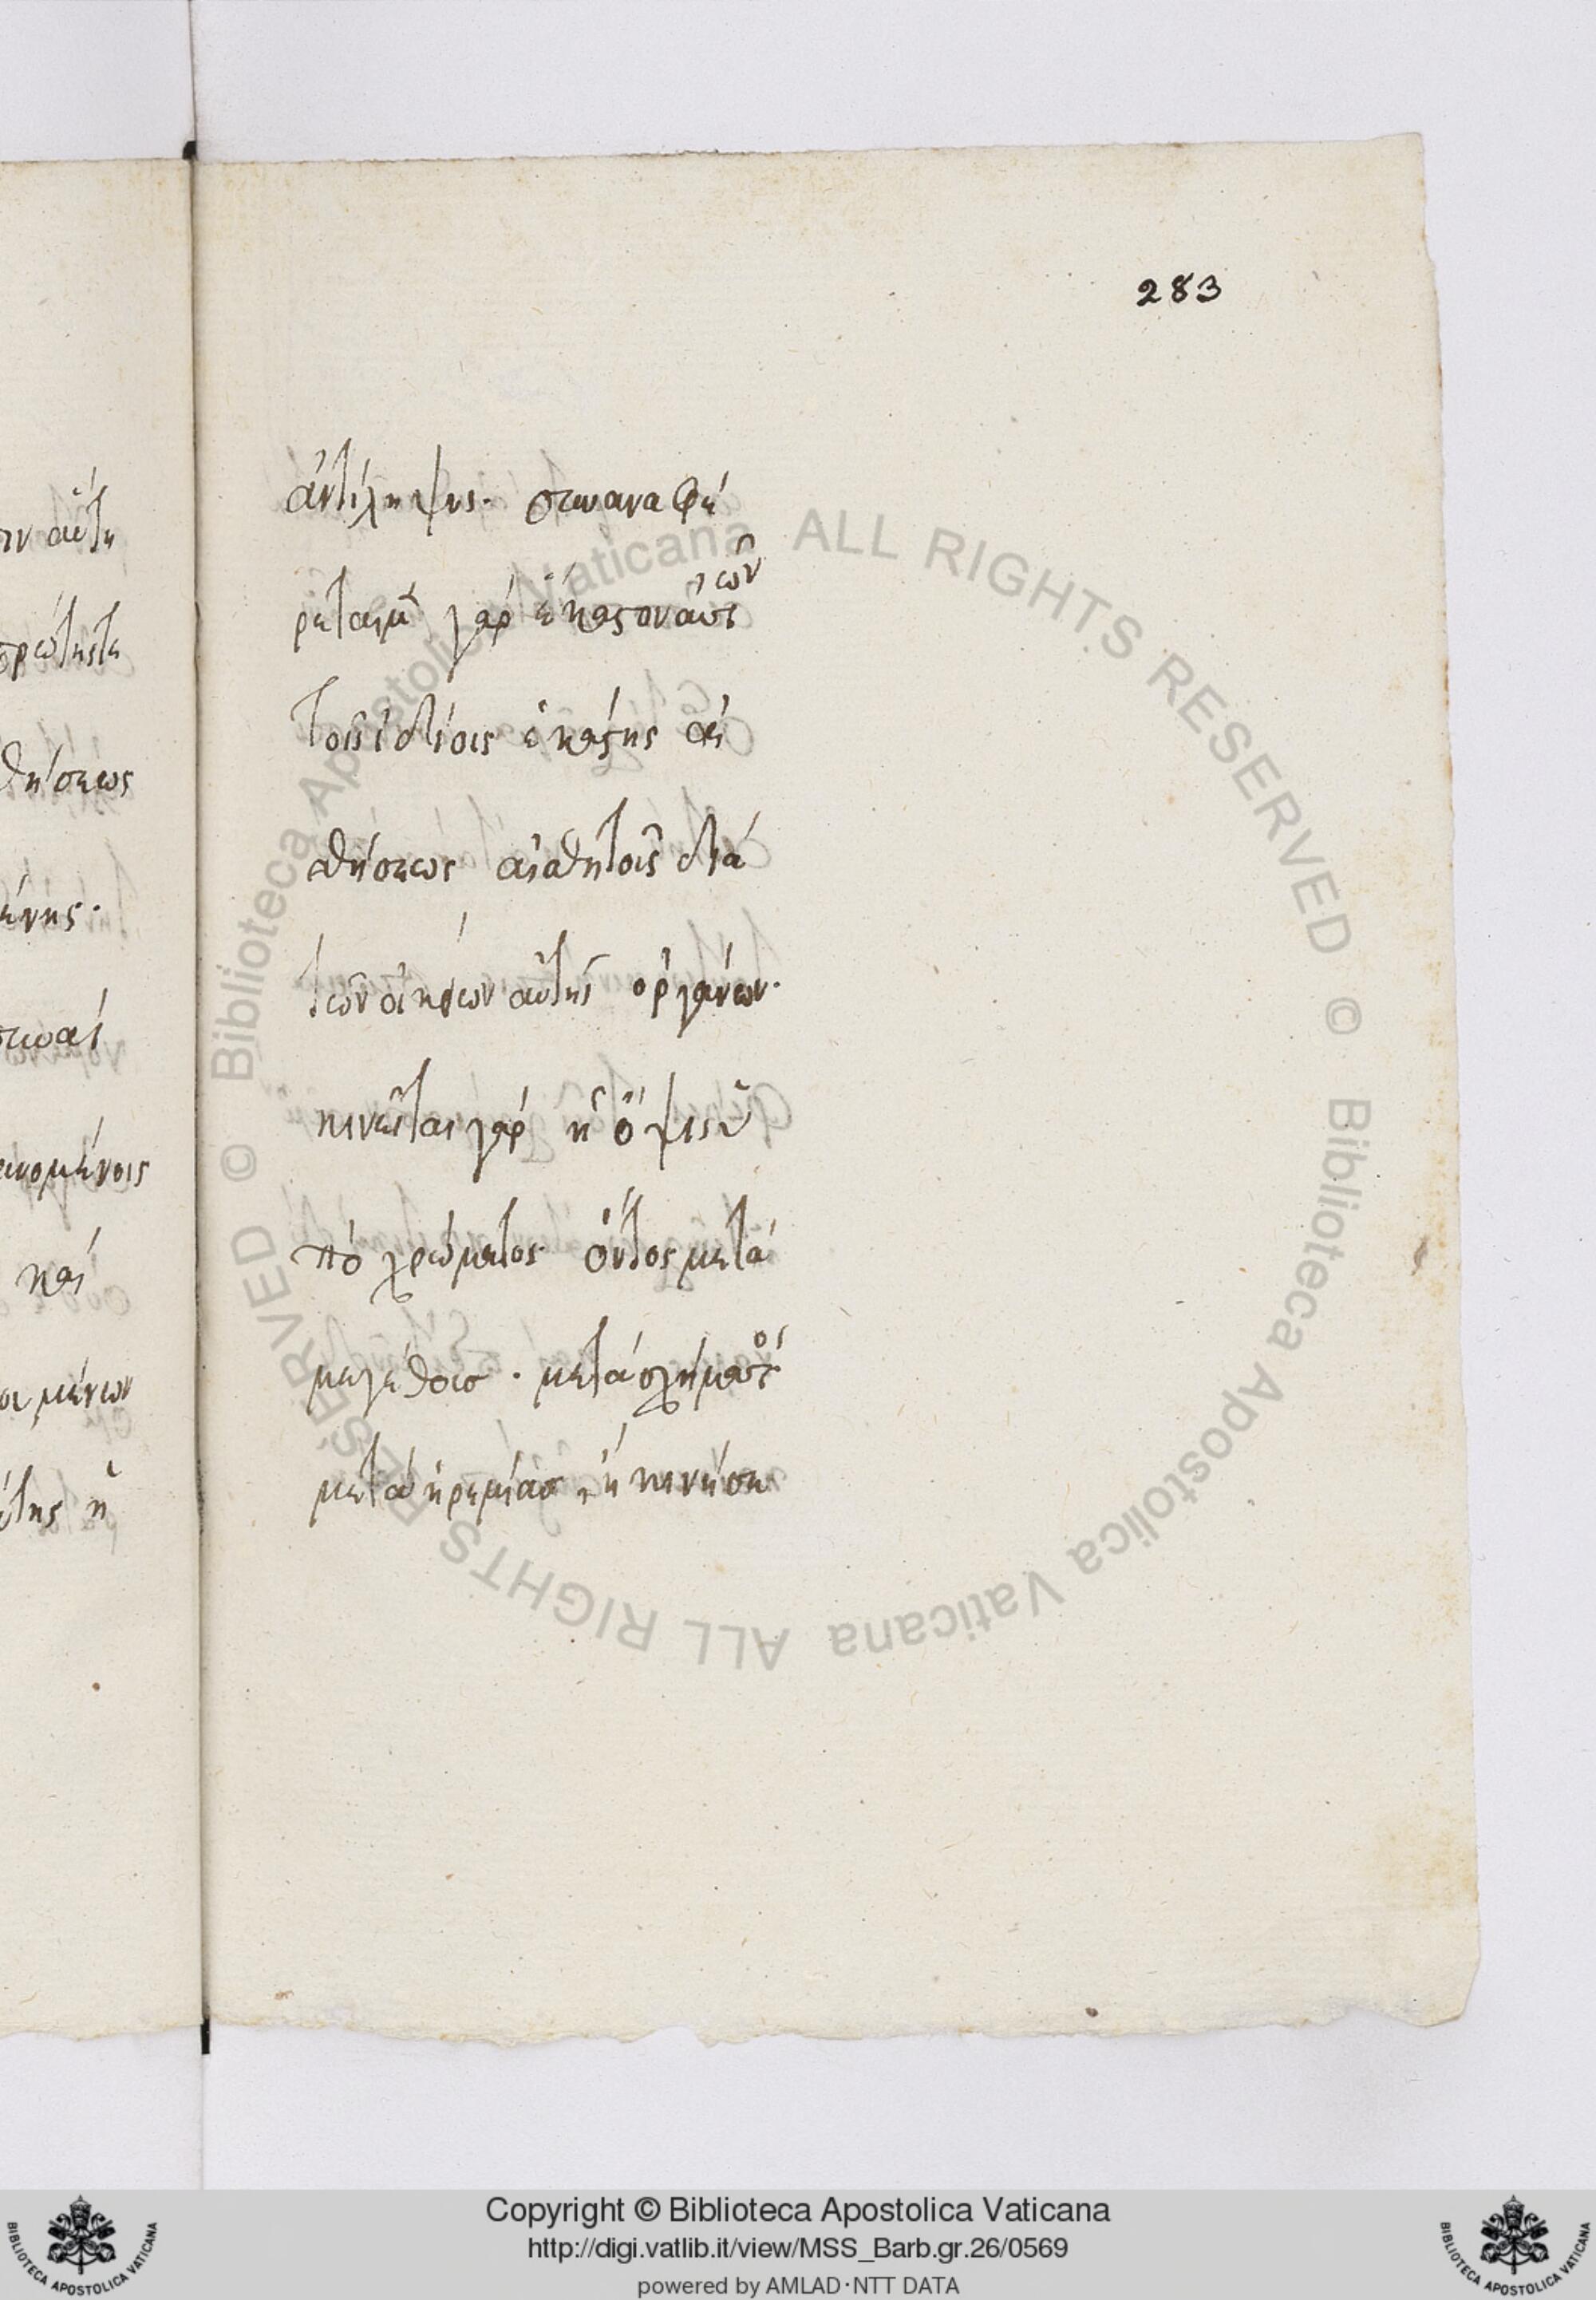 283
ἀντίληψις. συναναφέ
ρεται μὲν γὰρ ἕκαστον αὐτῶν
τοῖς ἰδίοις ἑκάστης αἰ
σθήσεως αἰσθητοῖς διὰ
τῶν οἰκείων αὐτῆς ὀργάνων.
κινεῖται γὰρ ἡ ὄψις ὑ
πὸ χρώματος ὄντος μετὰ
μεγέθους. μετὰ σχήματος
μετὰ ἠρεμίας ἢ κινήσε
ιν αὕτη
πρώτης τε
θήσεως
ένης.
καὶ
μένων
Copyright © Biblioteca Apostolica Vaticana
http://digi.vatlib.it/view/MSS_Barb.gr.26/0569
powered by AMLAD·NTT DATA
BIBLIOTECA APOSTOLICA VATICANA
BIBLIOTECA APOSTOLICA VATICANA
© Biblioteca Apostolica Vaticana ALL RIGHTS RESERVED
© Biblioteca Apostolica Vaticana ALL RIGHTS RESERVED